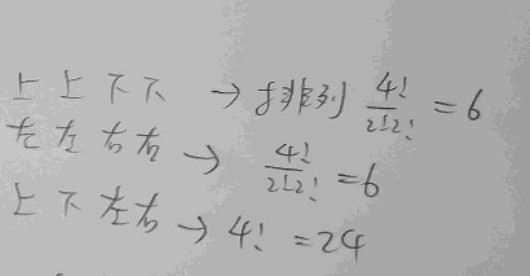 上上下下 → 排列 4!/2!2! = 6
左左右右 → 4!/2!2! = 6
上下左右 → 4! = 24